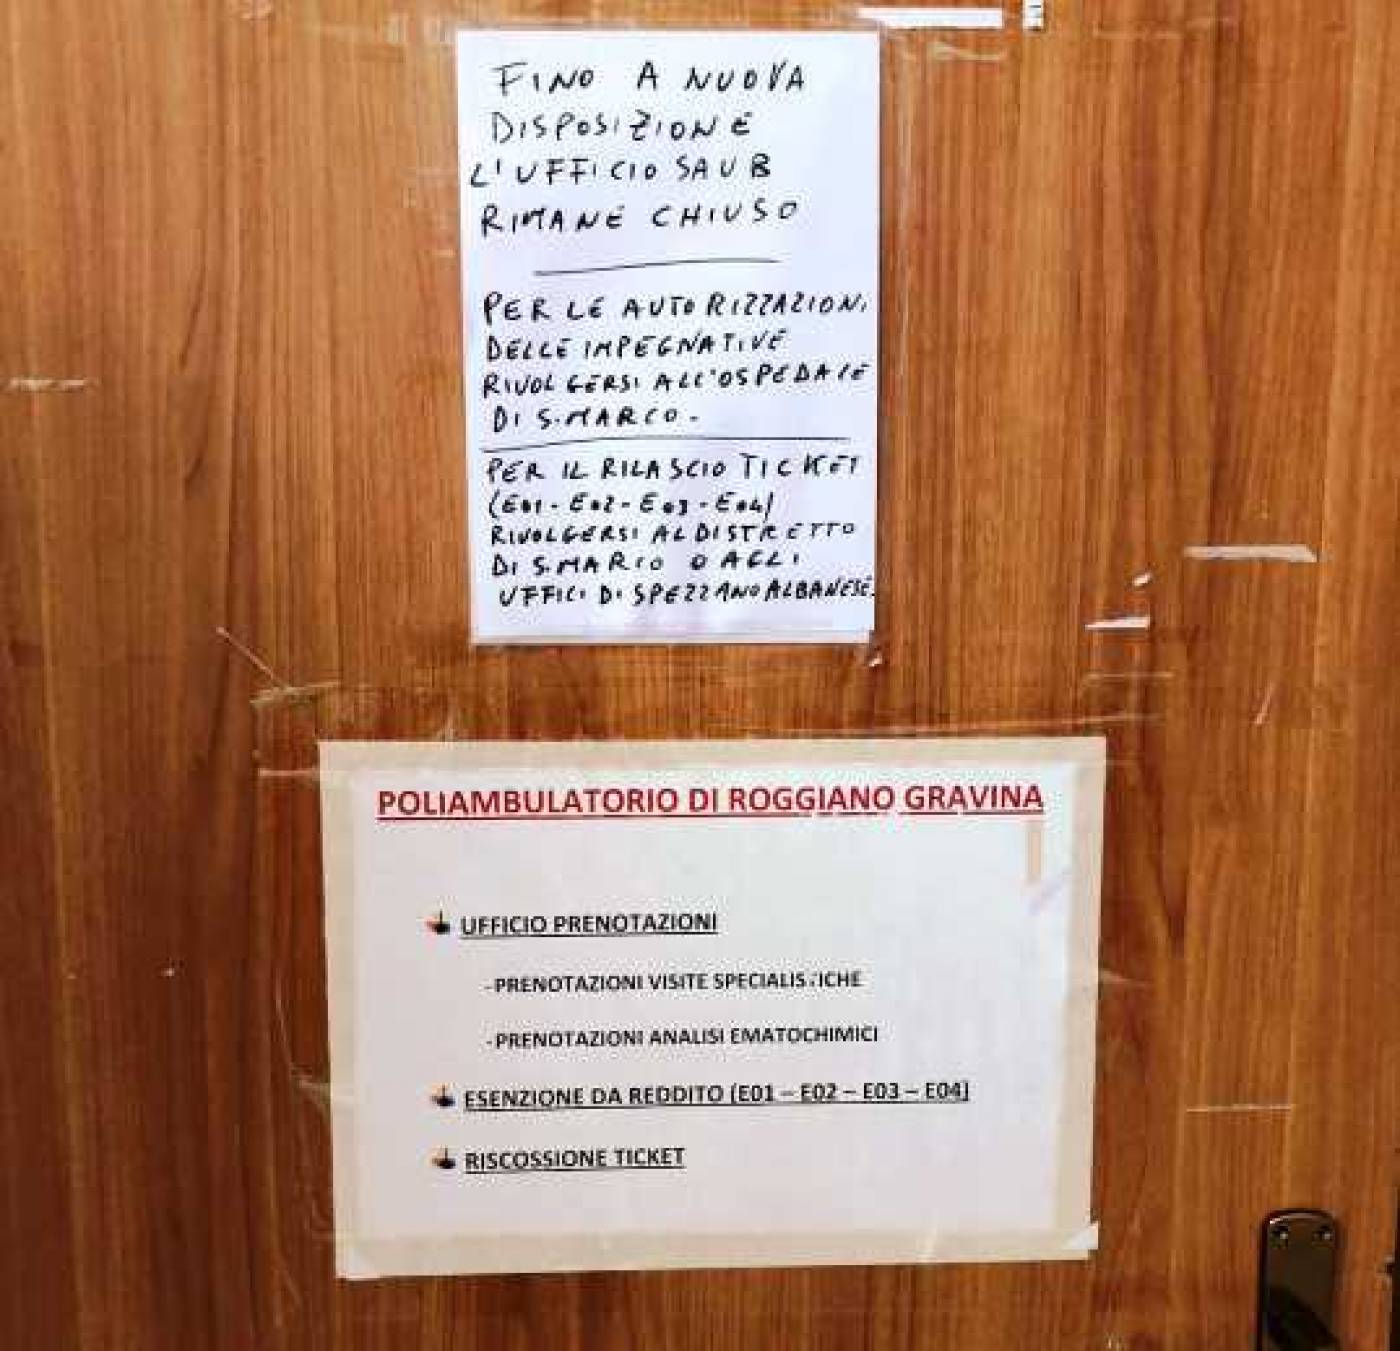 FINO A NUOVA
DISPOSIZIONE
L'UFFICIO SAUB
RIMANE CHIUSO
PER LE AUTORIZZAZIONI
DELLE IMPEGNATIVE
RIVOLGERSI ALL'OSPEDALE
DI S.MARCO.
PER IL RILASCIO TICKET
(E01-E02-E03-E04)
RIVOLGERSI AL DISTRETTO
DI S.MARCO O AGLI
UFFICI DI SPEZZANO ALBANESE.
POLIAMBULATORIO DI ROGGIANO GRAVINA
UFFICIO PRENOTAZIONI
-PRENOTAZIONI VISITE SPECIALISTICHE
-PRENOTAZIONI ANALISI EMATOCHIMICI
ESENZIONE DA REDDITO (E01 – E02 – E03 – E04)
RISCOSSIONE TICKET